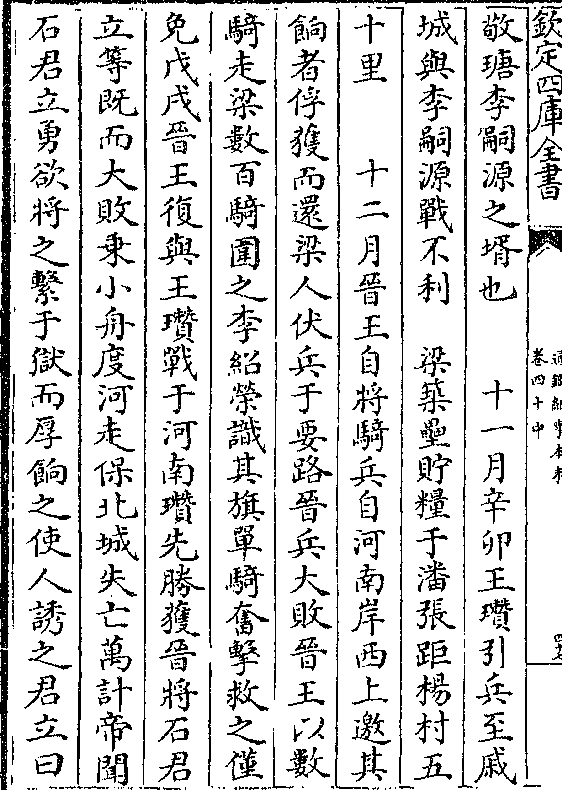 欽定四庫全書
通鑑紀事本末
卷四十中
敬瑭李嗣源之壻也　十一月辛卯王瓚引兵至戚
城與李嗣源戰不利　梁築壘貯糧于潘張距楊村五
十里　十二月晉王自將騎兵自河南岸西上邀其
餉者俘獲而還梁人伏兵于要路晉兵大敗晉王以數
騎走梁數百騎圍之李紹榮識其旗單騎奮擊救之僅
免戊戌晉王復與王瓚戰于河南瓚先勝獲晉將石君
立等既而大敗乘小舟度河走保北城失亡萬計帝聞
石君立勇欲將之繫于獄而厚餉之使人誘之君立曰